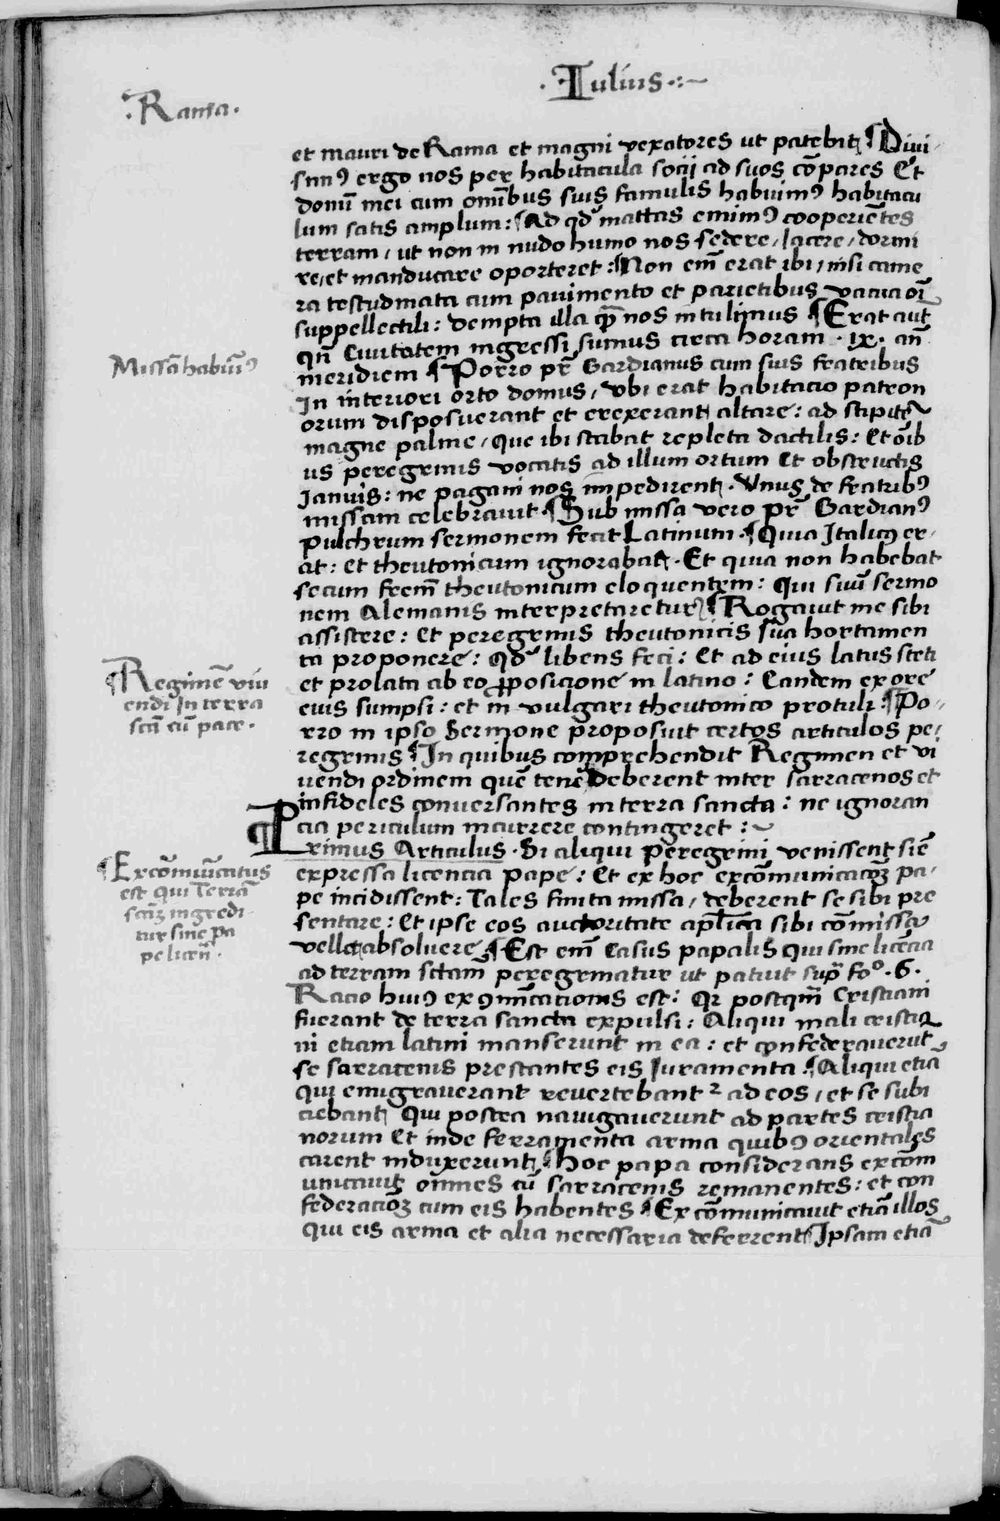 · Iulius ·:~
· Rama ·
et mauri de Rama et magni vexatores ut patebit ¶ Divi-
simꝰ ergo nos per habitacula socij ad suos cōpares Et
domū mei cum omībus suis famulis habuimꝰ habitacu
lum satis amplum: ¶ Ad qd mattas emimꝰ cooperiētes
terram / ut non in nudo humo nos sedere / Iacere / dormi
re / et manducare oporteret: ¶ Non em̄ erat ibi / nisi came
ra testudinata cum pavimento et parietibus vacua om̄i
suppellectili: dempta illa quā nos intulimus ¶ Erat aut̄
qn̄ Civitatem ingressi sumus circa horam · ix · an̄
meridiem ¶ Porro pr̄ Gardianus cum suis fratribus
In interiori orto domus / vbi erat habitacio patron
orum disposuerant et erexerant altare: ad stipitē
magne palme / que ibi stabat repleta dactilis: Et oīb
us peregrinis vocatis ad illum ortum Et obstructis
Ianuis: ne pagani nos impedirent · Vnus de fratribꝰ
missam celebravit · ¶ Sub missa vero pr̄ Gardianꝰ
Pulchrum sermonem fecit Latinum · ¶ Quia Italicꝰ er-
at: et theutonicum ignorabat · Et quia non habebat
secum frem̄ theutonicum eloquentem: Qui suū sermo
nem Alemanis interpretaretur ¶ Rogavit me sibi
assistere: Et peregrinis theutonicis sua hortamen
ta proponere: qd libens feci: Et ad eius latus steti
et prolata ab eo ꝓposicione in latino: Eandem ex ore
eius sumpsi: et in vulgari theutonico protuli: ¶ Po-
rro in ipso Sermone proposuit certos articulos pe-
regrinis ¶ In quibus comprehendit Regimen et vi
vendi ordinem quē tenere deberent inter sarracenos et
infideles conversantes in terra sancta: ne ignoran
cia periculum incurrere contingeret: ~
¶ Primus Articulus · Si aliqui peregrini venissent sine
expressa licencia pape: Et ex hoc excōmunicacōꝫ pa-
pe incidissent: Tales finita missa / deberent se sibi pre
sentare: Et ipse eos auctoritate ap̄lica sibi cōmissa
vellet absolvere ¶ Est em̄ Casus papalis qui sine licēcia
ad terram sctam peregrinatur ut patuit supͣ foº · 6 ·
Racio huiꝰ exꝯmīcationis est: Qr postqm̄ Cristiani
fuerant de terra sancta expulsi: Aliqui mali cristia
ni etiam latini manserunt in ea: et confederaverūt
se sarracenis prestantes eis Iuramenta · ¶ Aliqui etiā
qui emigraverant revertebantꝛ ad eos / et se subi
ciebant Qui postea navigaverunt ad partes cristia
norum Et inde ferramenta arma quibꝰ orientales
carent induxerunt ¶ hoc papa considerans excom
unicavit omnes cū sarracenis remanentes: et con
federacōꝫ cum eis habentes ¶ Excōmunicavit etiā illos
qui eis arma et alia necessaria deferrent ¶ Ipsam etiā
Missā habuimꝰ
¶ Regimē viv
endi In terra
scā cū pace ·
¶ Excōmunicatus
est qui Terrā
scāꝫ ingredi-
tur sine pa
pe licen̄ ·